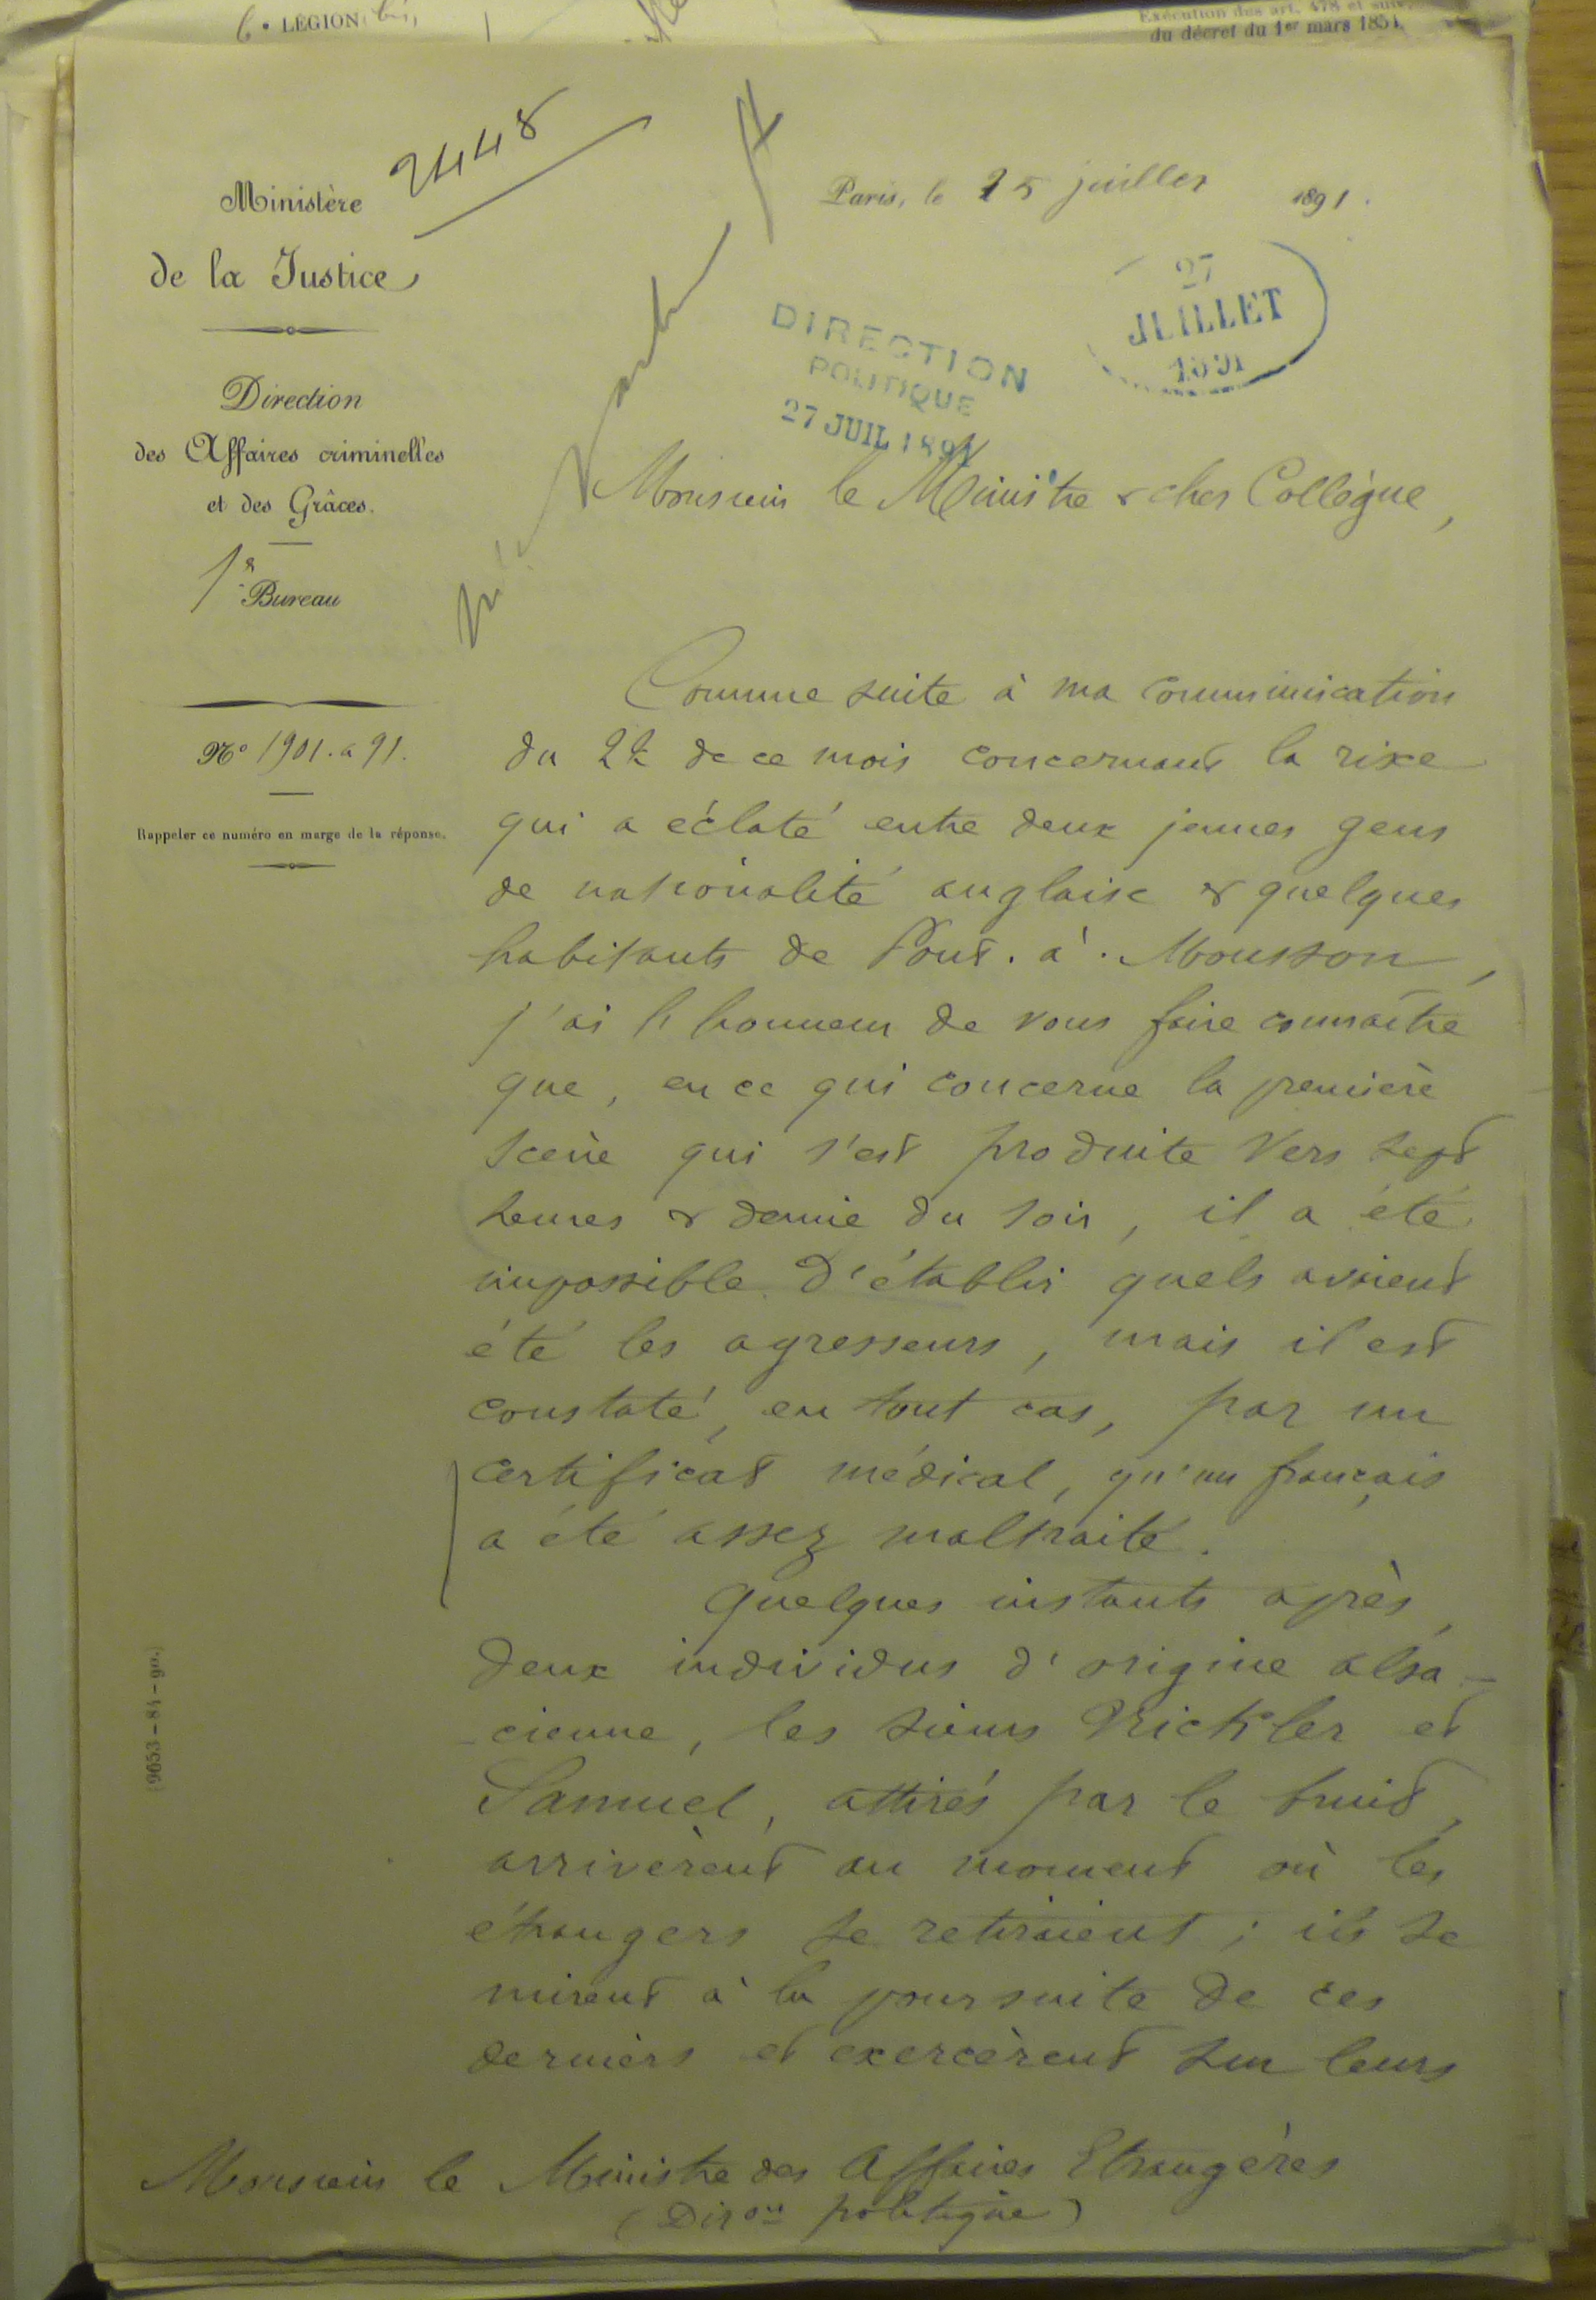 6e LÉGION bis,
Exécution des art. 478 et suiv.
du décret du 1er mars 1854.
2448
Ministère
de la Justice
Direction
des Affaires criminelles
et des Grâces.
1er Bureau
No 1901. a 91.
Rappeler ce numéro en marge de la réponse.
Paris, le 25 juillet 1891.
27
JUILLET
1891
DIRECTION
POLITIQUE
27 JUIL 1891
Monsieur le Ministre & cher Collègue,
Comme suite à ma communication
du 22 de ce mois concernant la rixe
qui a éclaté entre deux jeunes gens
de nationalité anglaise & quelques
habitants de Pont. à. Mousson,
j'ai l'honneur de vous faire connaître
que, en ce qui concerne la première
scène qui s'est produite vers sept
heures & demie du soir, il a été
impossible d'établir quels avaient
été les agresseurs, mais il est
constaté, en tout cas, par un
certificat médical, qu'un français
a été assez maltraité.
Quelques instants après,
deux individus d'origine alsa-
-cienne, les sieurs Rickler et
Samuel, attirés par le bruit,
arrivèrent au moment où les
étrangers se retiraient ; ils se
mirent à la poursuite de ces
derniers et exercèrent sur leurs
Monsieur le Ministre des Affaires Etrangères
(Diron politique)
(9653-84-90.)